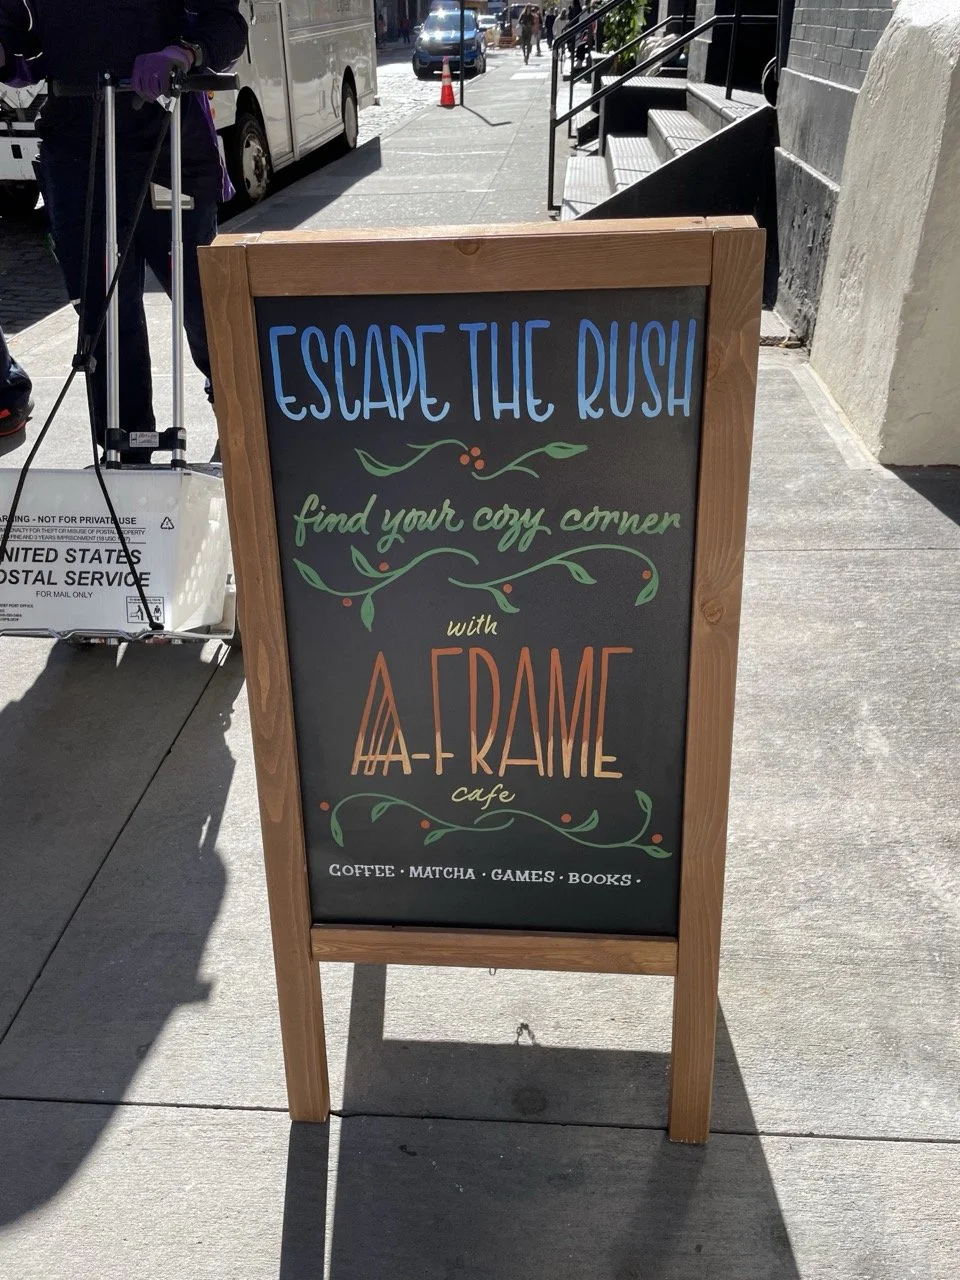 ESCAPE THE RUSH
find your cozy corner
with
A-FRAME
cafe
COFFEE · MATCHA · GAMES · BOOKS ·
NOT FOR PRIVATE USE
UNITED STATES
POSTAL SERVICE
FOR MAIL ONLY